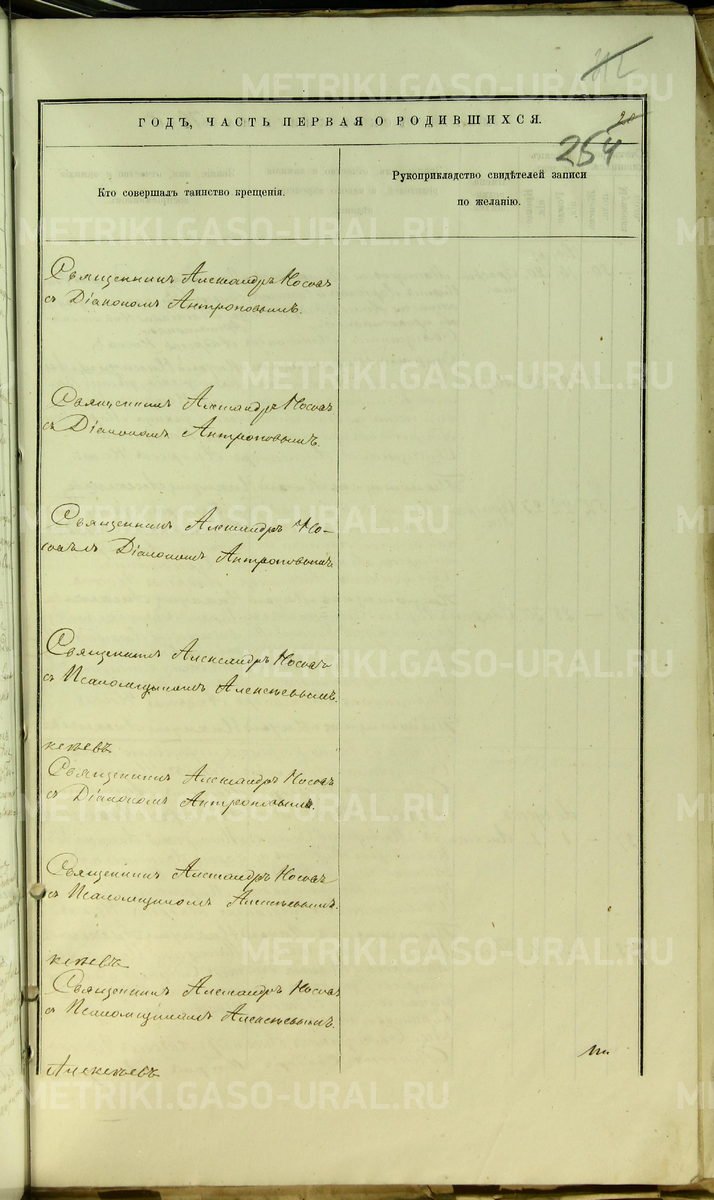 ГОДЪ, ЧАСТЬ ПЕРВАЯ О РОДИВШИХСЯ.
20
254
Кто совершалъ таинство крещенія.
Рукоприкладство свидѣтелей записи
по желанію.
Священникъ Александръ Носовъ
съ Діакономъ Антроповымъ.
Священникъ Александръ Носовъ
съ Діакономъ Антроповымъ.
Священникъ Александръ Но-
совъ съ Діакономъ Антроповымъ.
Священникъ Александръ Носовъ
съ Псаломщикомъ Алексѣевымъ.
Священникъ Александръ Носовъ
съ Діакономъ Антроповымъ.
Священникъ Александръ Носовъ
съ Псаломщикомъ Алексѣевымъ.
Священникъ Александръ Носовъ
съ Псаломщикомъ Алексѣевымъ.
Алексѣевъ
METRIKI.GASO-URAL.RU